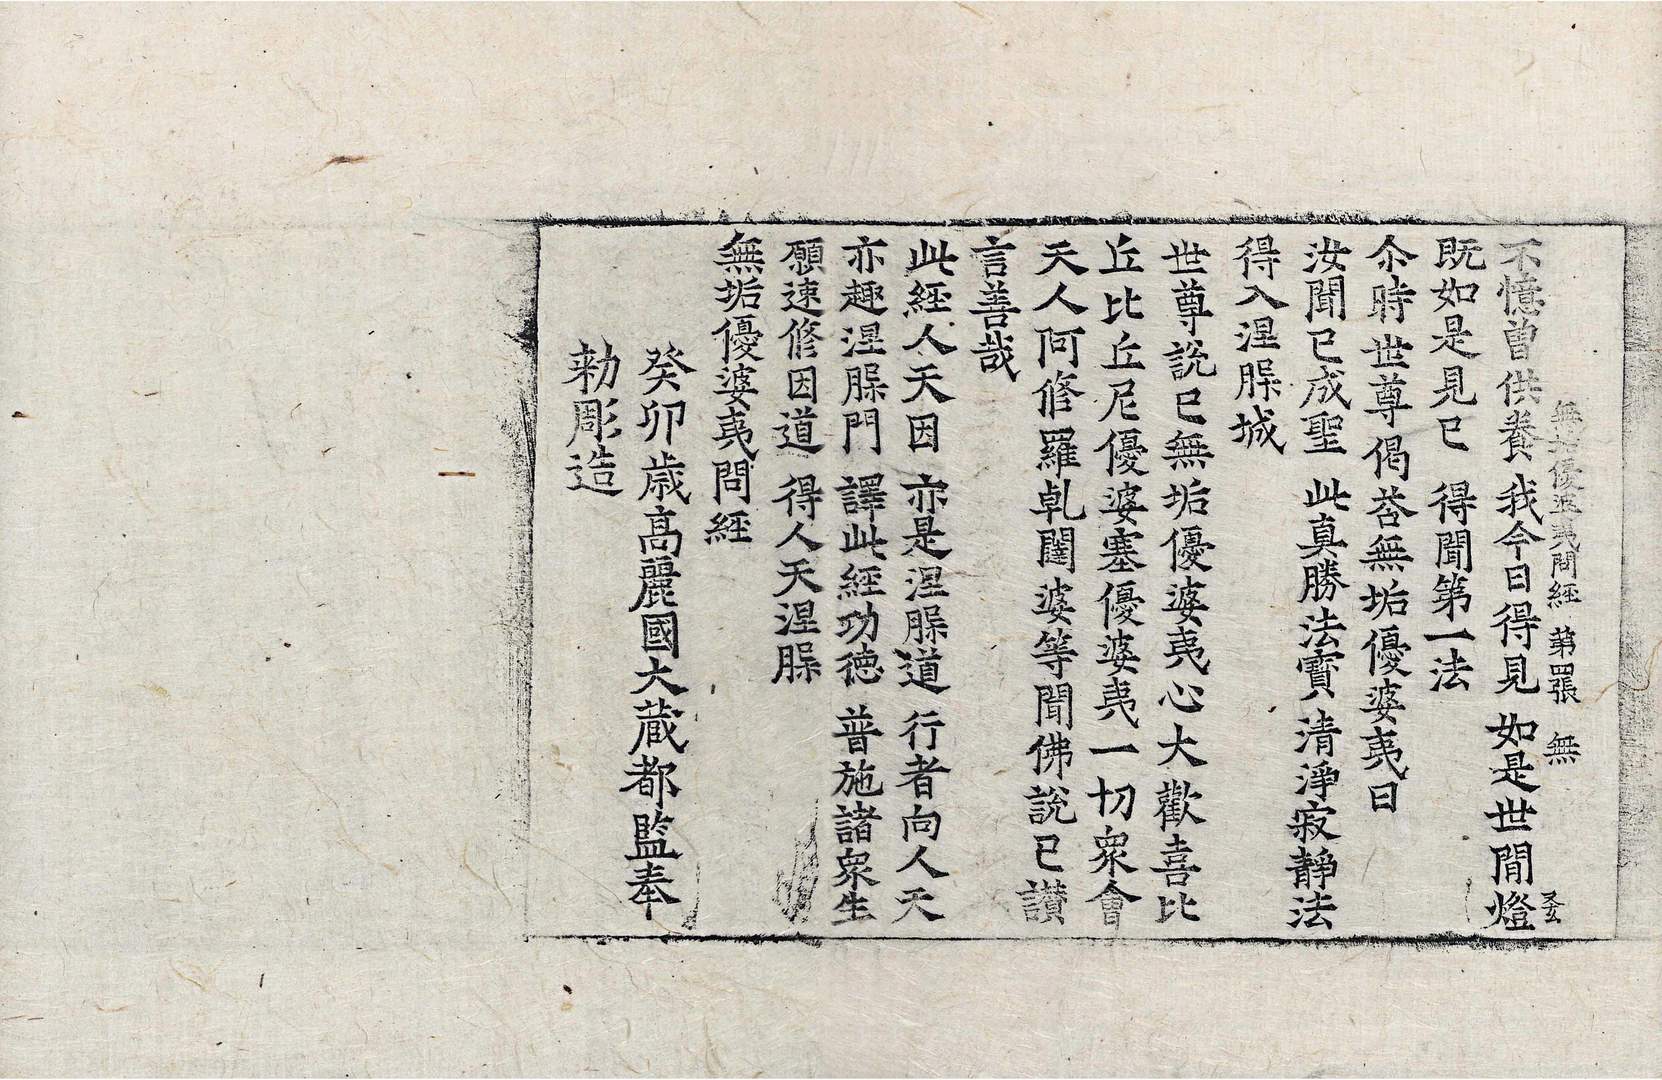 無垢優婆夷問經 第四張 無
不憶曽供養 我今日得見 如是世間燈
既如是見已 得聞第一法
尒時世尊偈荅無垢優婆夷曰
汝聞已成聖 此真勝法寶 清淨寂靜法
得入涅槃城
世尊說已無垢優婆夷心大歡喜比
丘比丘尼優婆塞優婆夷一切衆會
天人阿修羅乹闥婆等聞佛說已讃
言善哉
此經人天因 亦是涅槃道 行者向人天
亦趣涅槃門 譯此經功徳 普施諸衆生
願速修因道 得人天涅槃
無垢優婆夷問經
癸卯歳高麗國大蔵都監奉
勑彫造